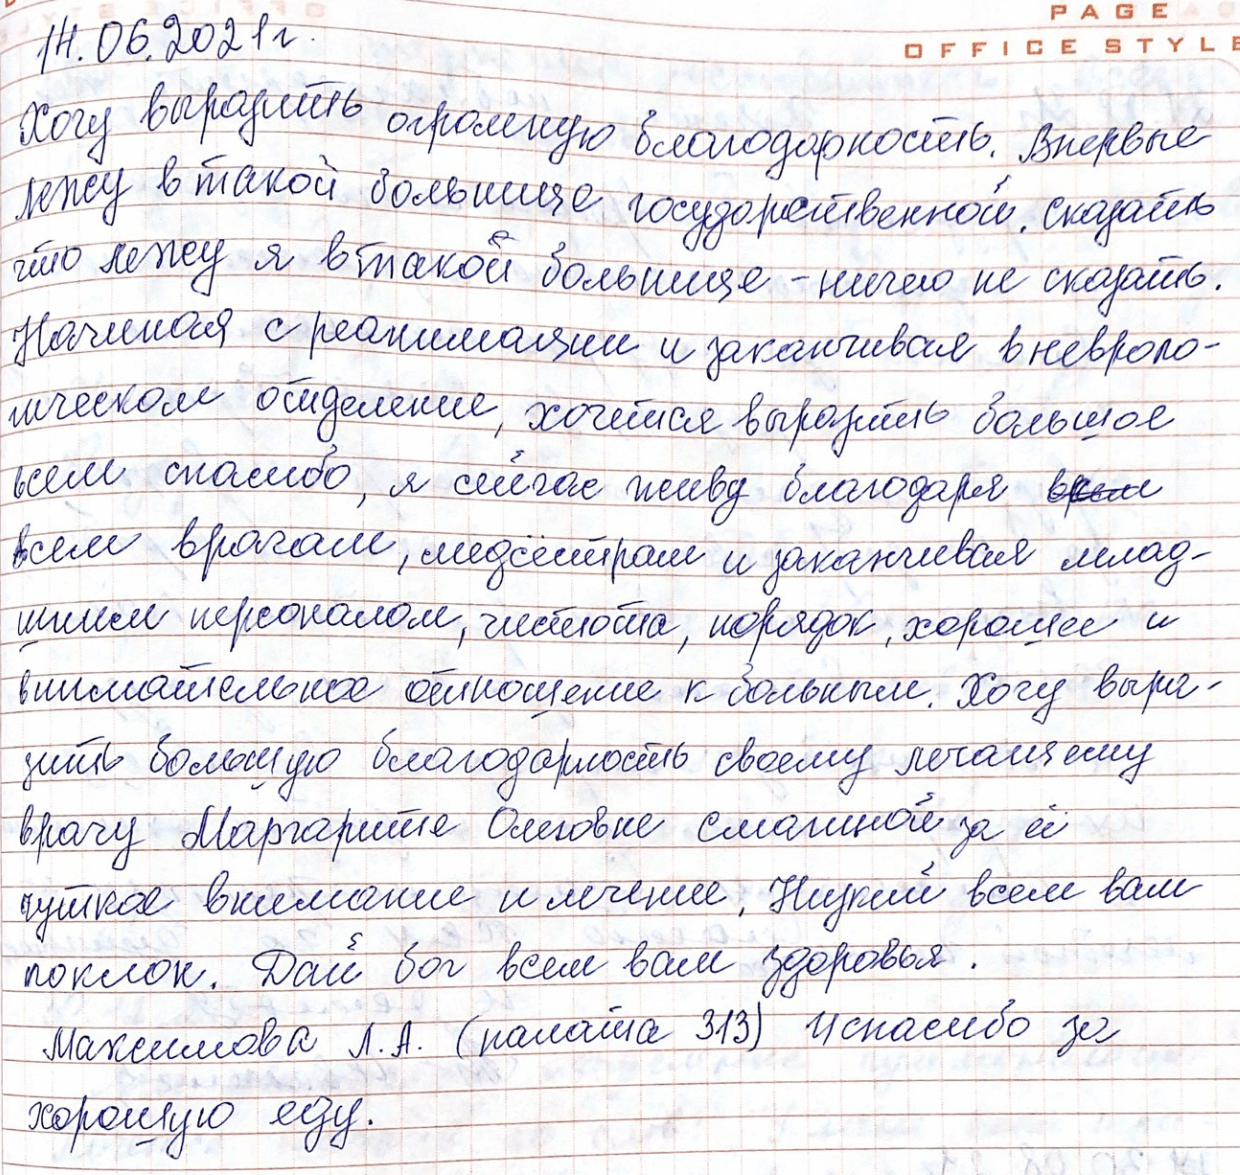 PAGE
OFFICE STYLE
14.06.2021г.
Хочу выразить огромную благодарность. Впервые
лежу в такой больнице, государственной. Сказать
что лежу я в такой больнице - ничего не сказать.
Начиная с реанимации и заканчивая в невроло-
гическом отделение, хочется выразить большое
всем спасибо, я сейчас живу благодаря
всем врачам, медсёстрам и заканчивая млад-
шим персоналом, чистота, порядок, хорошее и
внимательное отношение к больным. Хочу выра-
зить большую благодарность своему лечащему
врачу Маргарите Олеговне Смагиной за её
чуткое внимание и лечение. Низкий всем вам
поклон. Дай бог всем вам здоровья.
Максимова Л.А. (палата 313) И спасибо за
хорошую еду.